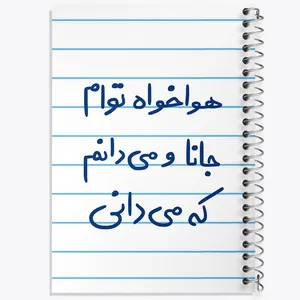 هواخواه توام
جانا و می‌دانم
که می‌دانی